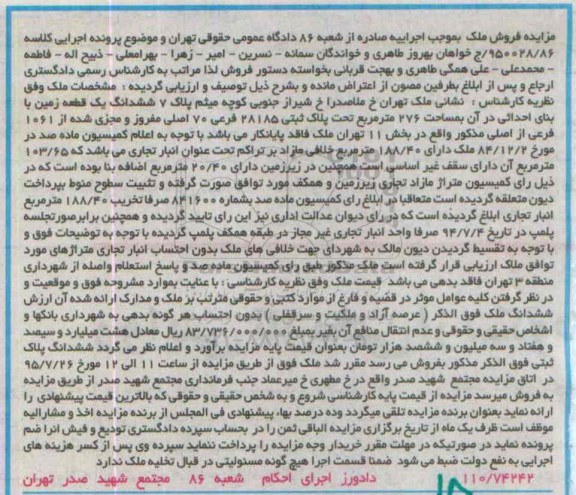 مزایده فروش ملک بموجب اجراییه صادره از شعبه ۸۶ دادگاه عمومی حقوقی تهران و موضوع پرونده اجرایی کلاسه
۹۵۰۰۲۸/۸۶/ج خواهان بهروز طاهری و خواندگان سمانه - نسرین - امیر - زهرا - بهرامعلی - ذبیح اله - فاطمه
- محمدعلی - علی همگی طاهری و بهجت قربانی بخواسته دستور فروش لذا مراتب به کارشناس رسمی دادگستری
ارجاع و پس از ابلاغ بطرفین مصون از اعتراض مانده و بشرح ذیل توصیف و ارزیابی گردیده : مشخصات ملک وفق
نظریه کارشناس : نشانی ملک تهران خ ملاصدرا خ شیراز جنوبی کوچه میثم پلاک ۷ ششدانگ یک قطعه زمین با
بنای احداثی در آن بمساحت ۲۷۶ مترمربع تحت پلاک ثبتی ۲۸۱۸۵ فرعی ۷۰ اصلی مفروز و مجزی شده از ۱۰۶۱
فرعی از اصلی مذکور واقع در بخش ۱۱ تهران ملک فاقد پایانکار می باشد با توجه به اعلام کمیسیون ماده صد در
مورخ ۸۴/۱۲/۲ ملک دارای ۱۸۸/۴۰ مترمربع خلافی مازاد بر تراکم تحت عنوان انبار تجاری می باشد که ۱۰۳/۶۵
مترمربع آن دارای سقف غیر اساسی است همچنین در زیرزمین دارای ۲۰/۴۰ مترمربع اضافه بنا بوده است که در
ذیل رای کمیسیون متراژ مازاد تجاری زیرزمین و همکف مورد توافق صورت گرفته و تثبیت سطوح منوط بپرداخت
دیون متعلقه گردیده است متعاقبا در ابلاغ رای کمیسیون ماده صد بشماره ۸۴۱۶۰۰ صرفا تخریب ۱۸۸/۴۰ مترمربع
انبار تجاری ابلاغ گردیده است که در رای دیوان عدالت اداری نیز این رای تایید گردیده و همچنین برابر صورتجلسه
پلمپ در تاریخ ۹۴/۷/۴ صرفا واحد انبار تجاری غیر مجاز در طبقه همکف پلمپ گردیده با توجه به توضیحات فوق و
با توجه به تقسیط گردیدن دیون مالک به شهردای جهت خلافی های ملک بدون احتساب انبار تجاری متراژهای مورد
توافق ملک ارزیابی قرار گرفته است ملک مذکور طبق رای کمیسیون ماده صد و پاسخ استعلام واصله از شهرداری
منطقه ۳ تهران فاقد بدهی می باشد قیمت ملک وفق نظریه کارشناسی : با عنایت بموارد مشروحه فوق و موقعیت و
در نظر گرفتن کلیه عوامل موثر در قضیه و فارغ از موارد کتبی و حقوقی مترتب بر ملک و مدارک ارائه شده آن ارزش
ششدانگ ملک فوق الذکر ( عرصه آزاد و ملکیت و سرقفلی ) بدون احتساب هر گونه بدهی به شهرداری بانکها و
اشخاص حقیقی و حقوقی و عدم انتقال منافع آن بغیر بمبلغ ۸۳/۷۳۶/۰۰۰/۰۰۰ ریال معادل هشت میلیارد و سیصد
و هفتاد و سه میلیون و ششصد هزار تومان بعنوان قیمت پایه مزایده برآورد و اعلام نظر می گردد ششدانگ پلاک
ثبتی فوق الذکر مذکور بفروش می رسد مقرر شد ملک فوق از طریق مزایده از ساعت ۱۱ الی ۱۲ مورخ ۹۵/۷/۲۶
در اتاق مزایده مجتمع شهید صدر واقع در خ مطهری خ میرعماد جنب فرمانداری مجتمع شهید صدر از طریق مزایده
به فروش میرسد مزایده از قیمت پایه کارشناسی شروع و به شخص حقیقی و حقوقی که بالاترین قیمت پیشنهادی را
ارائه نماید بعنوان برنده مزایده تلقی میگردد وده درصد بهاء پیشنهادی فی المجلس از برنده مزایده اخذ و مشارالیه
موظف است ظرف یک ماه از تاریخ برگزاری مزایده الباقی ثمن را در بحساب سپرده دادگستری تودیع و فیش انرا ضم
پرونده نماید در صورتیکه در مهلت مقرر خریدار وجه مزایده را پرداخت ننماید سپرده وی پس از کسر هزینه های
اجرایی به نفع دولت ضبط می شود ضمنا قسمت اجرا هیچ گونه مسئولیتی در قبال تخلیه ملک ندارد
۱۱۰/۷۴۲۴۲ دادورز اجرای احکام شعبه ۸۶ مجتمع شهید صدر تهران